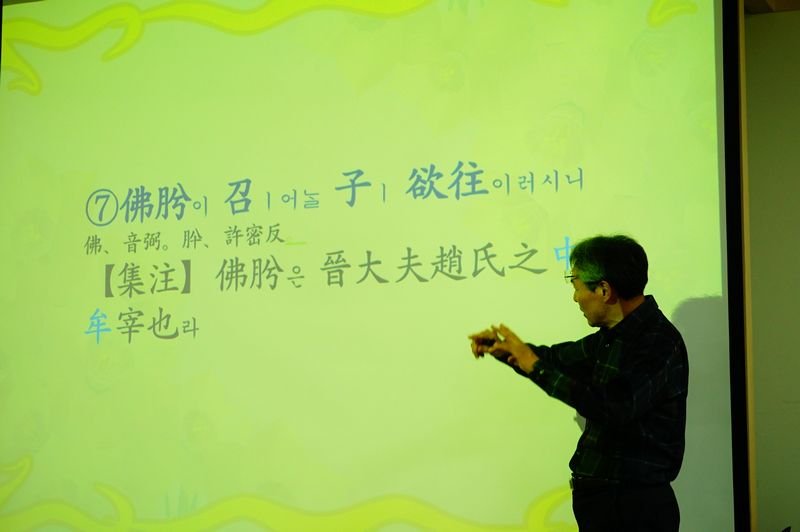 ⑦佛肸이 召ㅣ어늘 子ㅣ 欲往이러시니
佛、音弼。肸、許密反
【集注】佛肸은 晉大夫趙氏之 中
牟宰也라